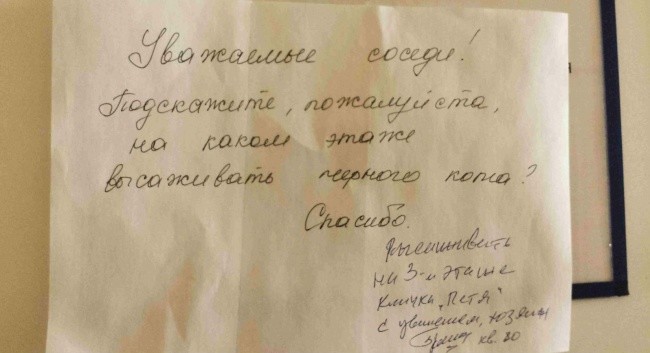 Уважаемые соседи!
Подскажите, пожалуйста,
на каком этаже
высаживать черного кота?
Спасибо.
Высаживать
на 3-м этаже
Кличка „Петя"
с уважением, хозяин
кв. 30